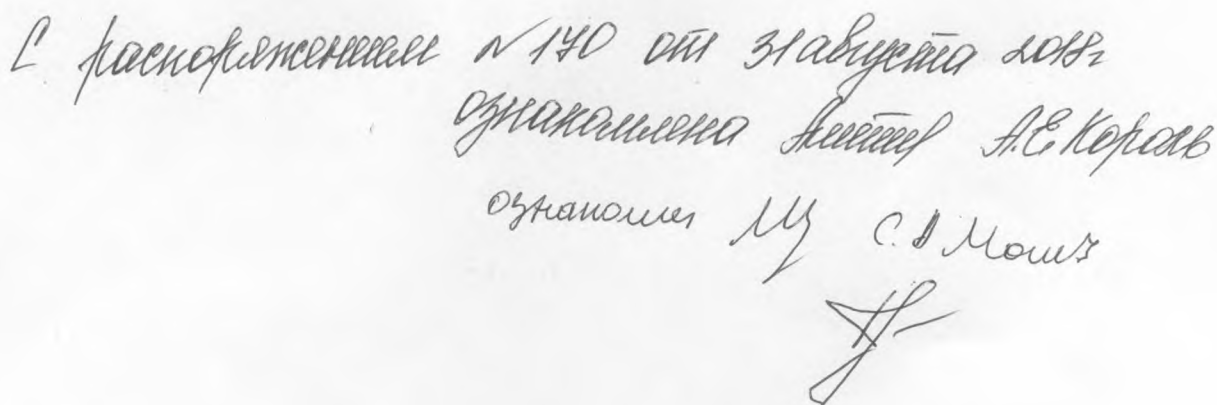 С распоряжением № 170 от 31 августа 2018г
ознакомлена А.Е Король
ознакомлен С.А